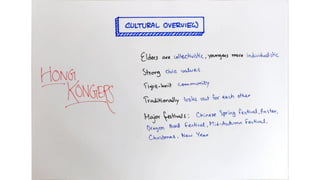 CULTURAL OVERVIEW
HONG
KONGERS
Elders are collectivistic, youngers more individualistic
Strong civic values
Tight-knit community
Traditionally looks out for each other
Major festivals: Chinese Spring Festival, Easter,
Dragon Boat Festival, Mid-Autumn Festival,
Christmas, New Year